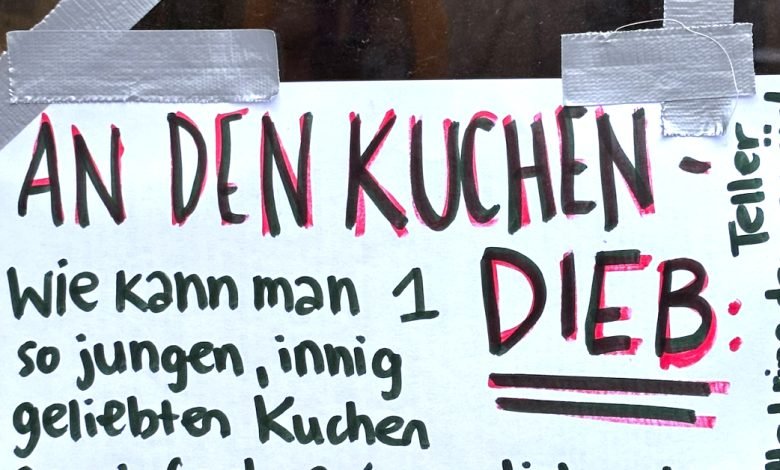 AN DEN KUCHEN-
DIEB:
Wie kann man 1
so jungen, innig
geliebten Kuchen
Teller